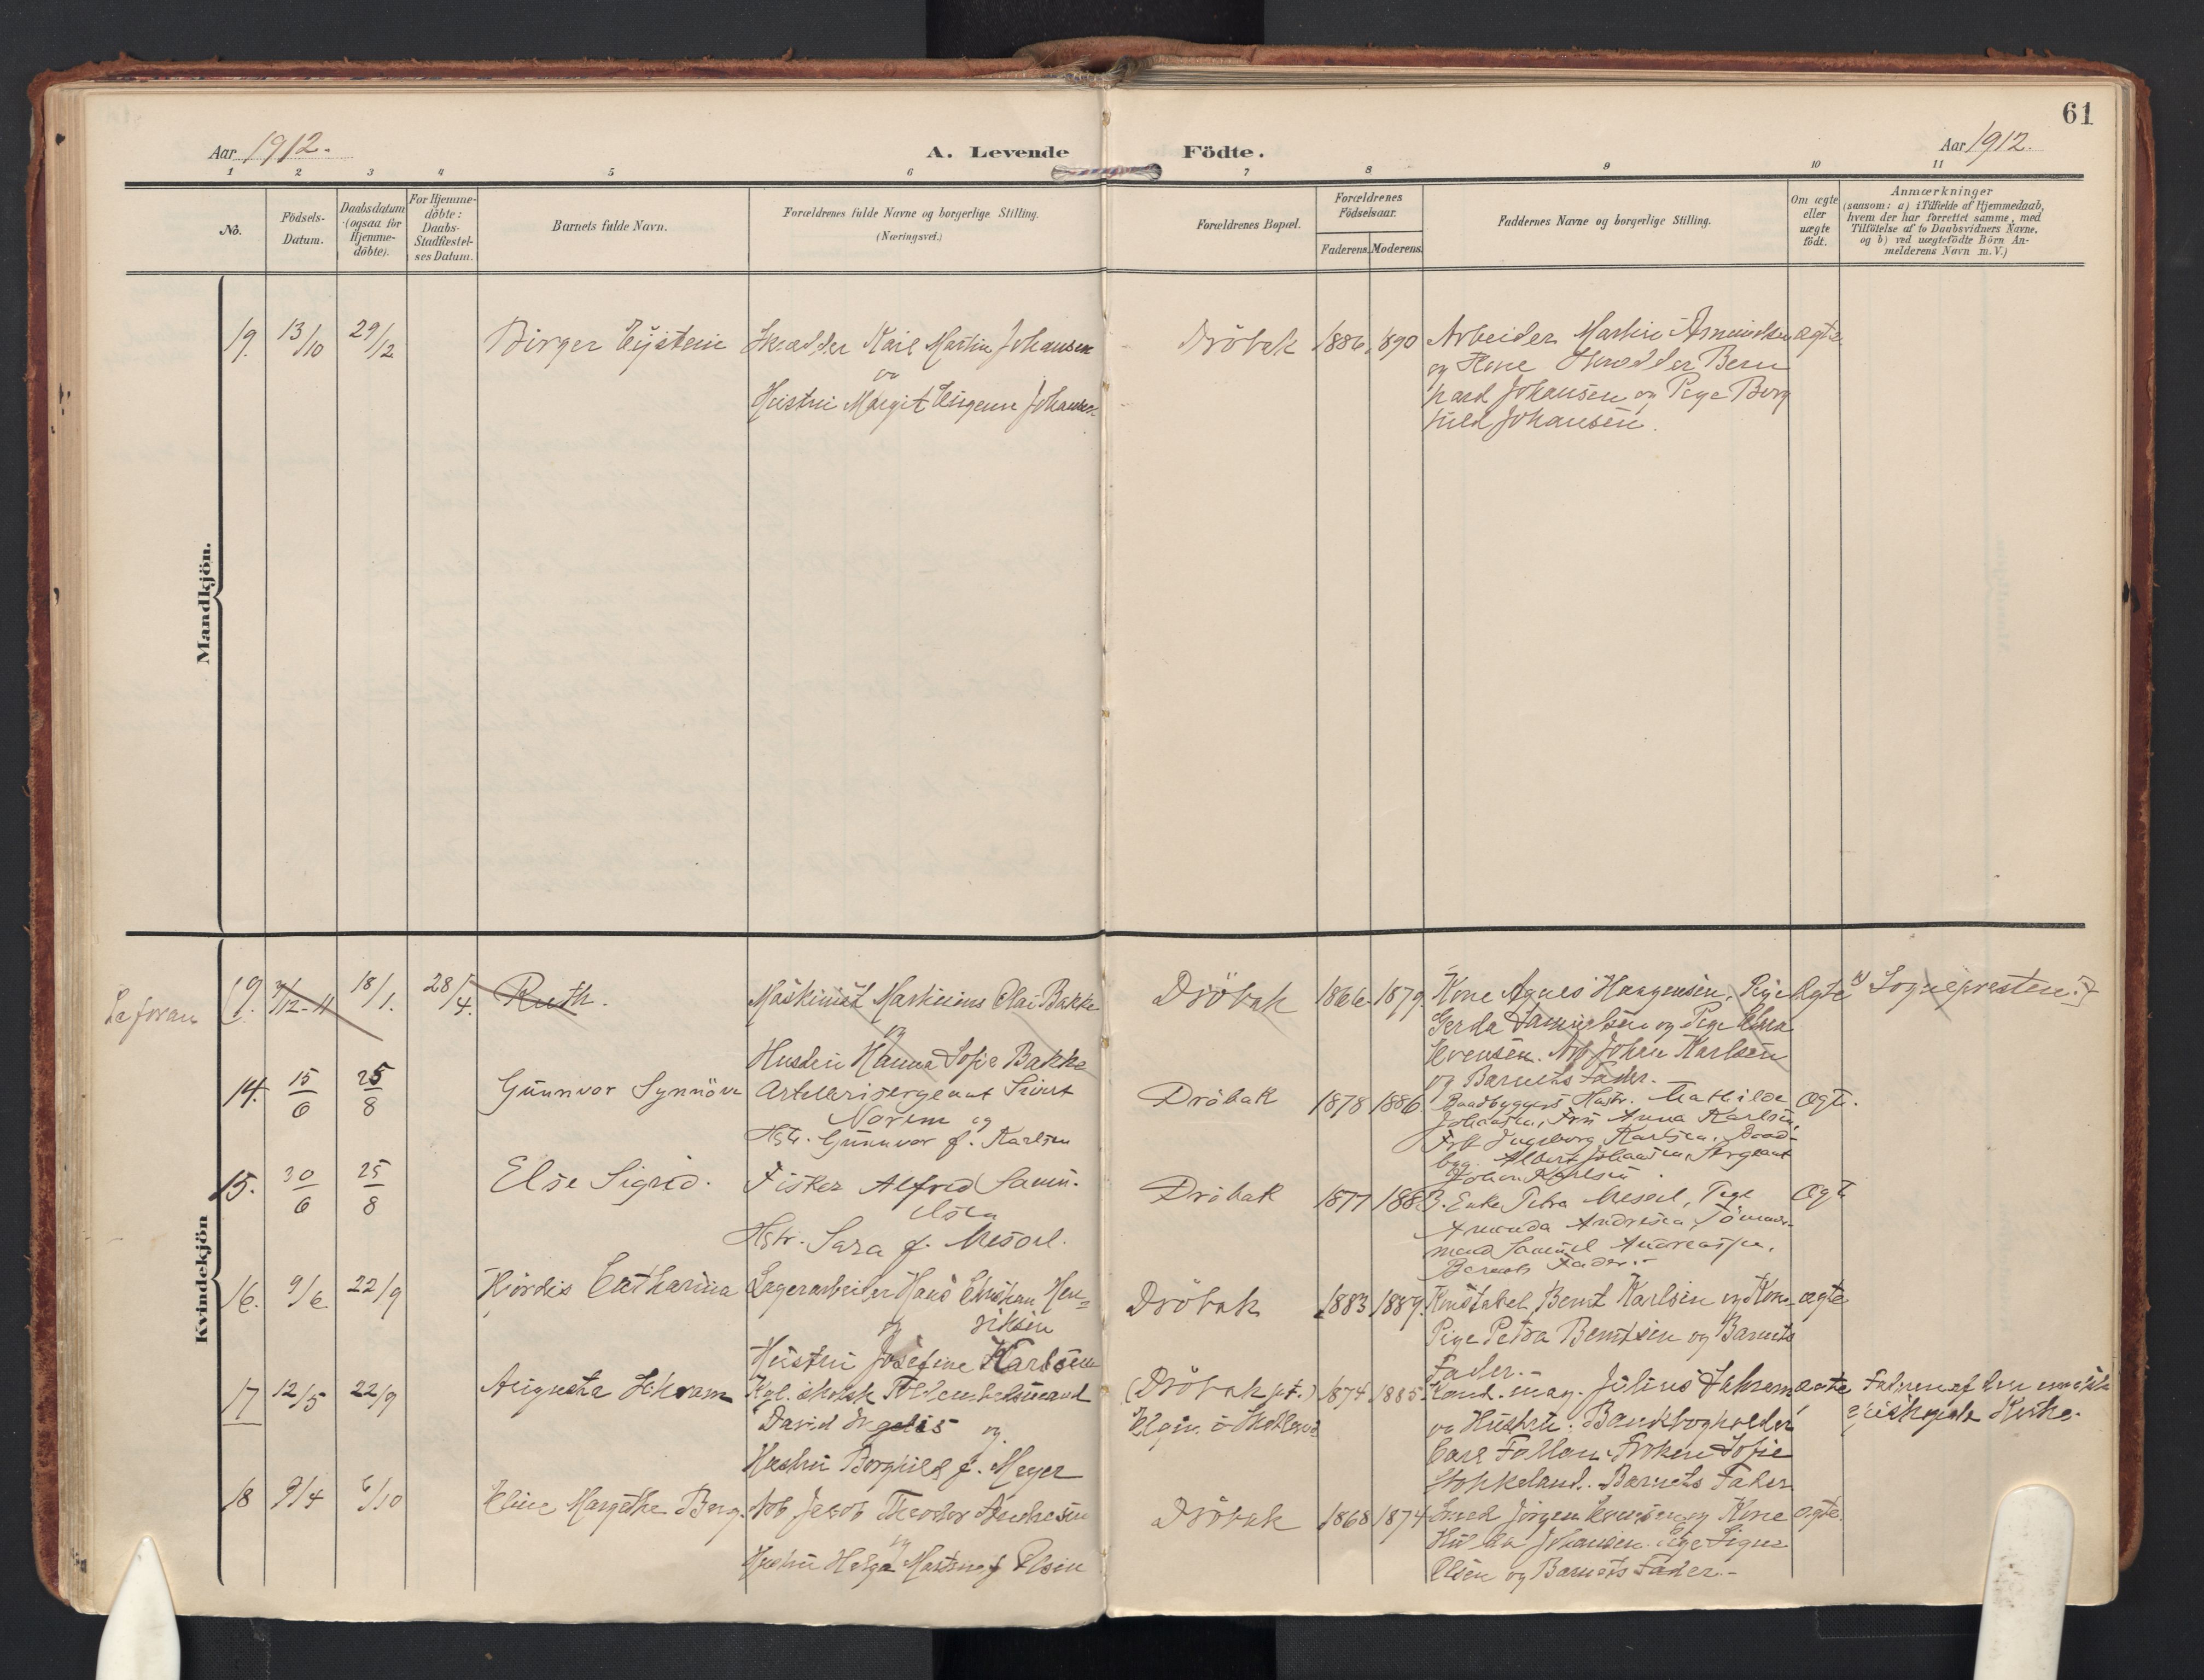 61
Aar 1912.
A. Levende
Födte.
Aar 1912.
1 2 3 4 5 6 7 8 9 10 11
No.
Födsels-
Datum.
Daabsdatum
(ogsaa for
Hjemme-
döbte).
For Hjemme-
döbte:
Daabs-
Stadfæstel-
ses Datum.
Barnets fulde Navn.
Forældrenes fulde Navne og borgerlige Stilling.
(Næringsvei.)
Forældrenes Bopæl.
Forældrenes
Födselsaar.
Faderens. Moderens.
Faddernes Navne og borgerlige Stilling.
Om ægte
eller
uægte
födt.
Anmærkninger
(saasom: a) i Tilfælde af Hjemmedaab,
hvem der har forrettet samme, med
Tilföielse af to Daabsvidners Navne.
og b) ved uægtefödte Börn An-
melderens Navn m. V.)
Mandkjön.
19. 13/10 29/12 Birger Eystein
Skrædder Karl Martin Johansen
og
Hustru Margit Eugenie Johansen
Dröbak 1886 1890
Arbeider Martin Amundsen
og Kone Skrædder Bern
hard Johansen og Pige Borg
hild Johansen.
ægte
Kvindekjön
Se foran
[9. 3/12-11 18/1. 28/4. Ruth.
Maskinist Martinius Olai Bakke
og
Hustru Hanna Sofie Bakke
Dröbak 1866 1879.
Kone Agnes Haagensen, Pige
Gerda Danielsen og Pige
Evensen. Arb Johan Karlsen
og Barnets Fader.
Ægte
a) Sognepresten.]
14. 15/6 25/8 Gunnvor Synnöve
Artillerisergeant Sivert
Norem og
Hstr. Gunnvor f. Karlsen
Dröbak 1878 1886
Baadbyggers Hustr. Mathilde
Johansen, Frü Anna Karlsen,
Ingeborg Karlsen, Baad-
byg. Albert Johansen, Sergeant
Johan Karlsen.
Ægte.
15. 30/6 25/8 Else Sigrid.
Fisker Alfred Samu-
elsen
Hstr. Sara f. Mesel.
Dröbak 1877 1883.
Enke Petra Mesel, Pige
Amanda Andresen, Tömmer-
mand Samuel Andreassen,
Barnets Fader.
Ægte
16. 9/6 22/9 Hjördis Catharina
Lagerarbeider Hans Christian Hen-
og riksen
Hustru Josefine Karlsen
Dröbak 1883 1889.
Konstabel Bernt Karlsen og Kone
Pige Petra Berntsen og Barnets
Fader.
ægte
17 12/5 22/9 Augusta
Kgl.
David og
Hustru Borghild f. Meyer
(Dröbak pt.)
Elgin i Skotland
1874 1885
Kand. mag. Julius
og Hustru. Bankbogholder
Carl Fröken Sofie
Barnets Fader
ægte
Faderen af den engelske
Kirke.
18 9/4 6/10 Eline Margethe Berg.
Arb Jacob Theodor Andresen
og
Hustru Helga f Olsen
Dröbak 1868 1874
Smed Jörgen Evensen og Kone
Hulda Johansen. Pige Signe
Olsen og Barnets Fader.
ægte.